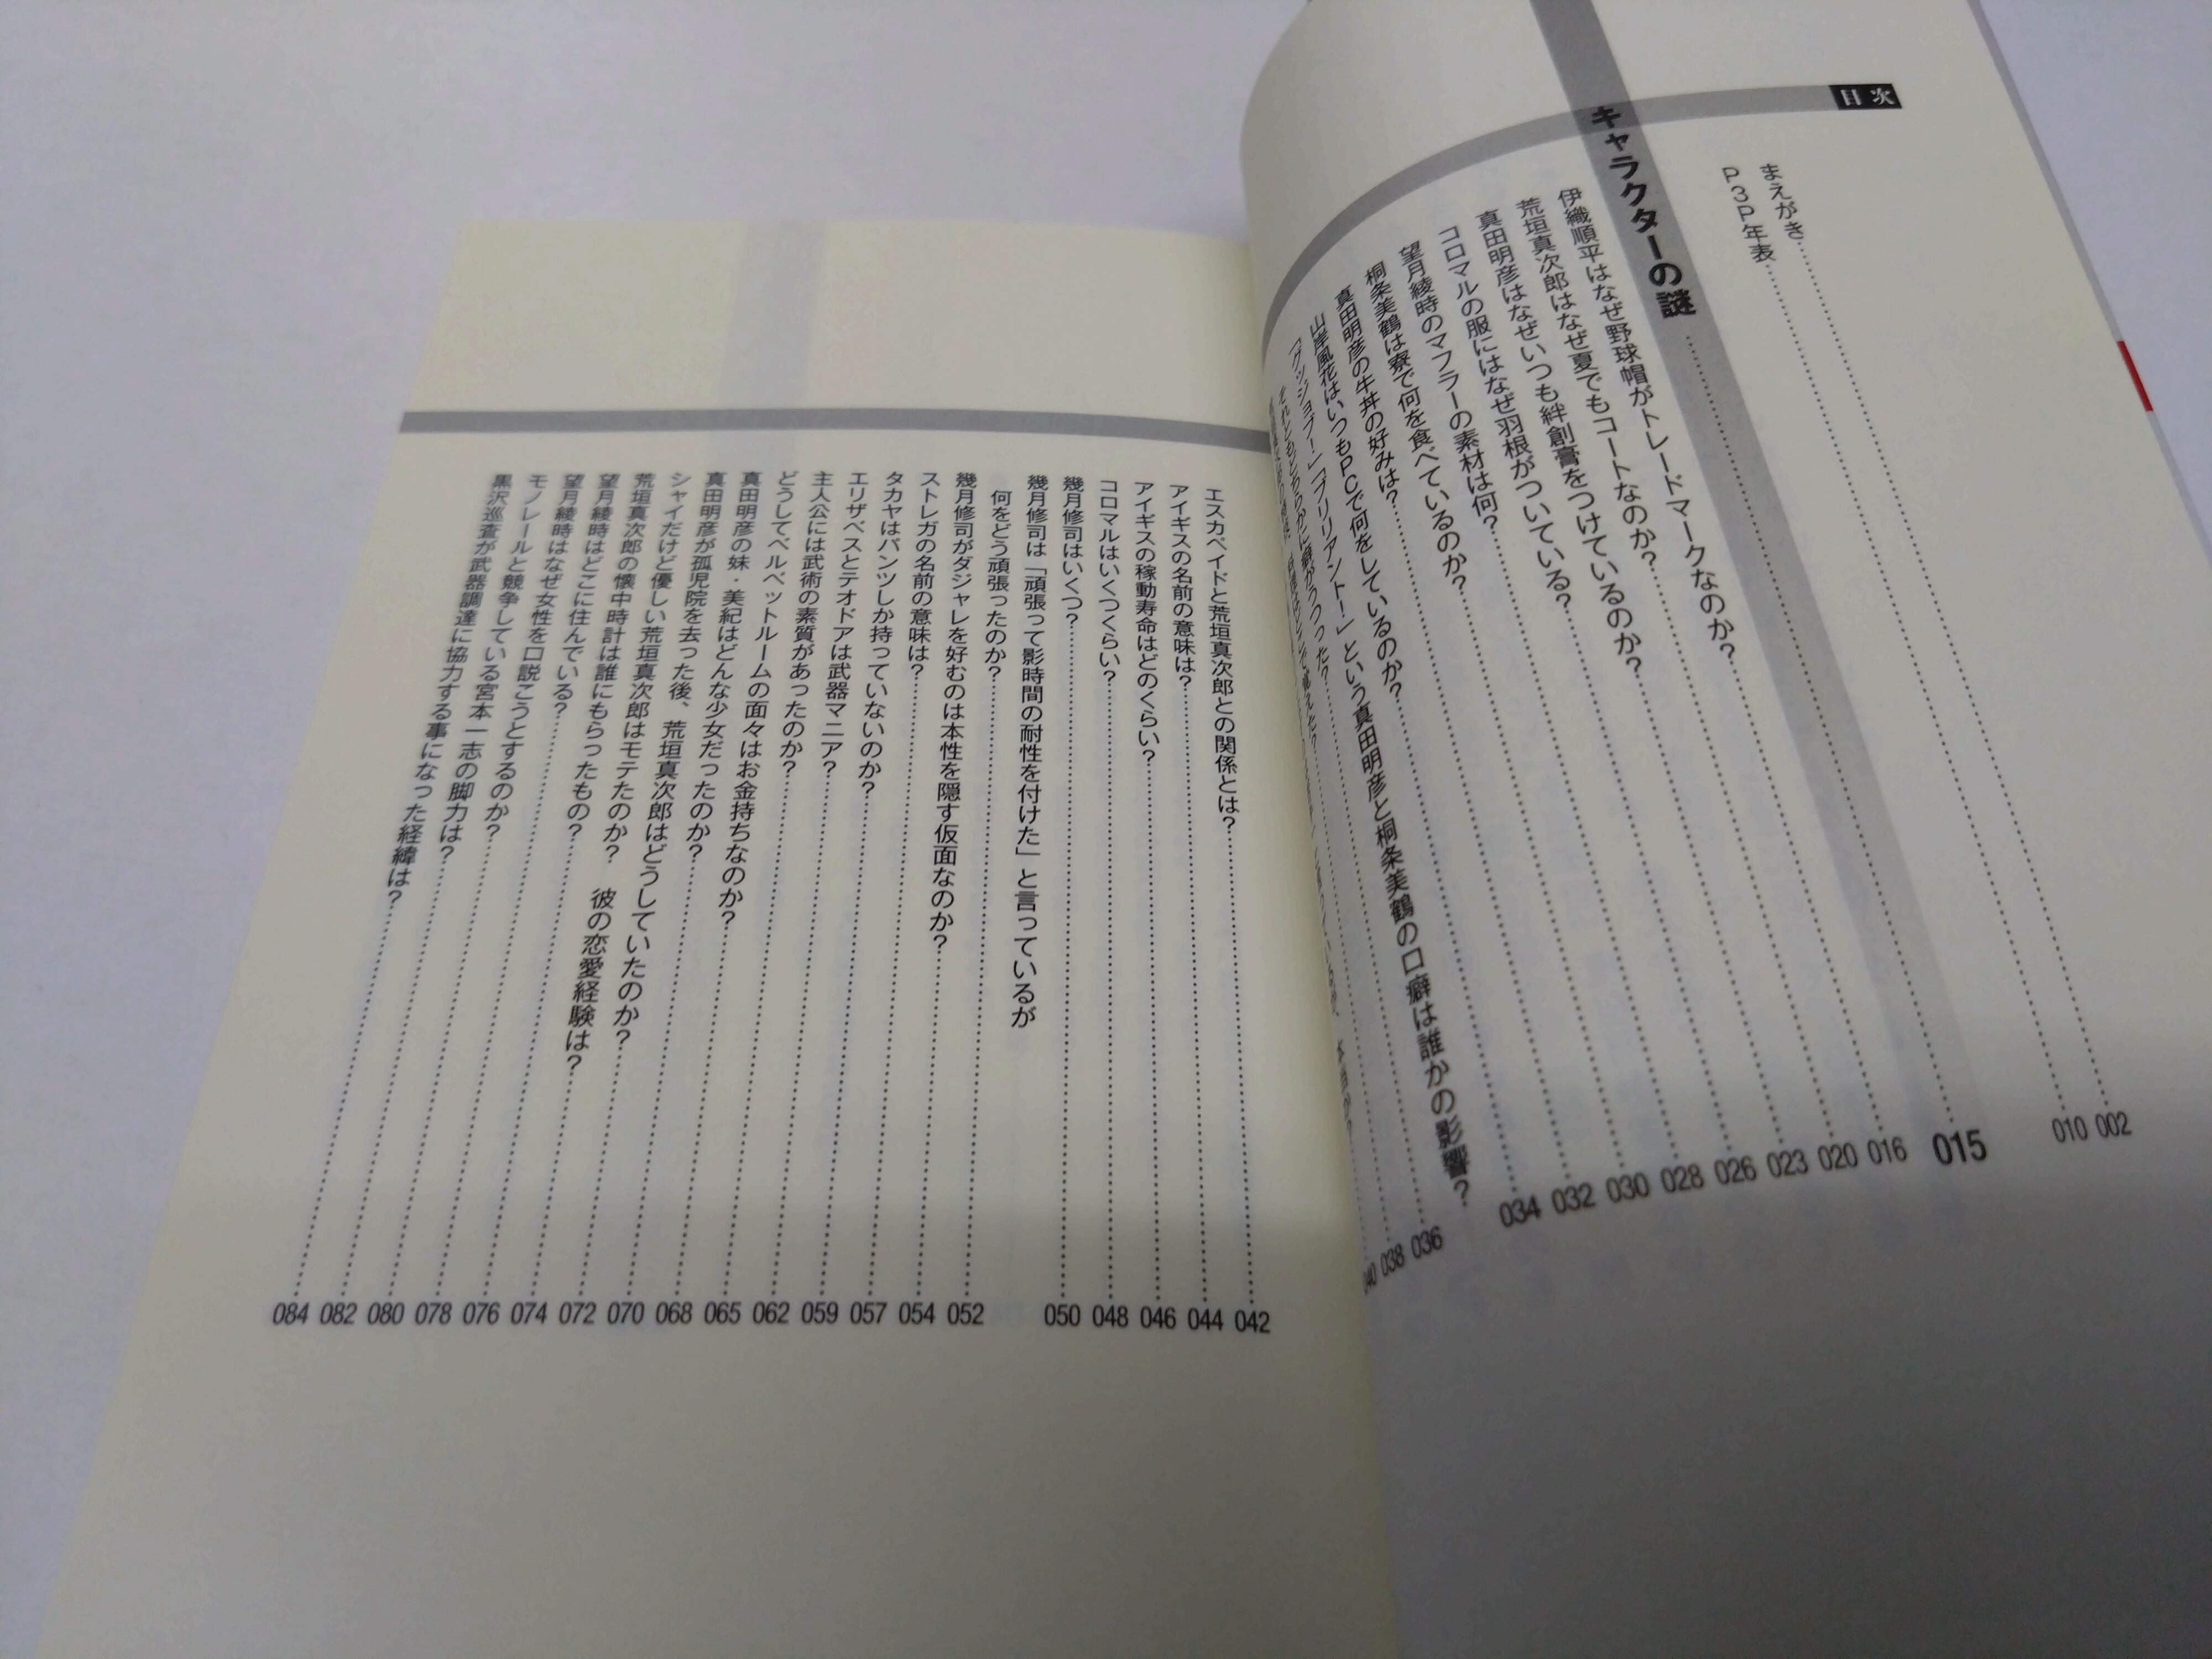 目次
まえがき 002
P3P年表 010
キャラクターの謎 015
伊織順平はなぜ野球帽がトレードマークなのか? 016
荒垣真次郎はなぜ夏でもコートなのか? 020
真田明彦はなぜいつも絆創膏をつけているのか? 023
コロマルの服にはなぜ羽根がついている? 026
望月綾時のマフラーの素材は何? 028
桐条美鶴は寮で何を食べているのか? 030
真田明彦の牛丼の好みは? 032
山岸風花はいつもPCで何をしているのか? 034
「グッジョブ!」「ブリリアント!」という真田明彦と桐条美鶴の口癖は誰かの影響?
それともどちらかに癖がうつった? 036
038
エスカペイドと荒垣真次郎との関係とは? 042
アイギスの名前の意味は? 044
アイギスの稼動寿命はどのくらい? 046
コロマルはいくつくらい? 048
幾月修司はいくつ? 050
幾月修司は「頑張って影時間の耐性を付けた」と言っているが
何をどう頑張ったのか? 052
幾月修司がダジャレを好むのは本性を隠す仮面なのか? 054
ストレガの名前の意味は? 057
タカヤはパンツしか持っていないのか? 059
エリザベスとテオドアは武器マニア? 062
主人公には武術の素質があったのか? 065
どうしてベルベットルームの面々はお金持ちなのか? 068
真田明彦の妹・美紀はどんな少女だったのか? 070
真田明彦が孤児院を去った後、荒垣真次郎はどうしていたのか? 072
シャイだけど優しい荒垣真次郎はモテたのか? 彼の恋愛経験は? 074
荒垣真次郎の懐中時計は誰にもらったもの? 076
望月綾時はどこに住んでいる? 078
望月綾時はなぜ女性を口説こうとするのか? 080
モノレールと競争している宮本一志の脚力は? 082
黒沢巡査が武器調達に協力する事になった経緯は? 084